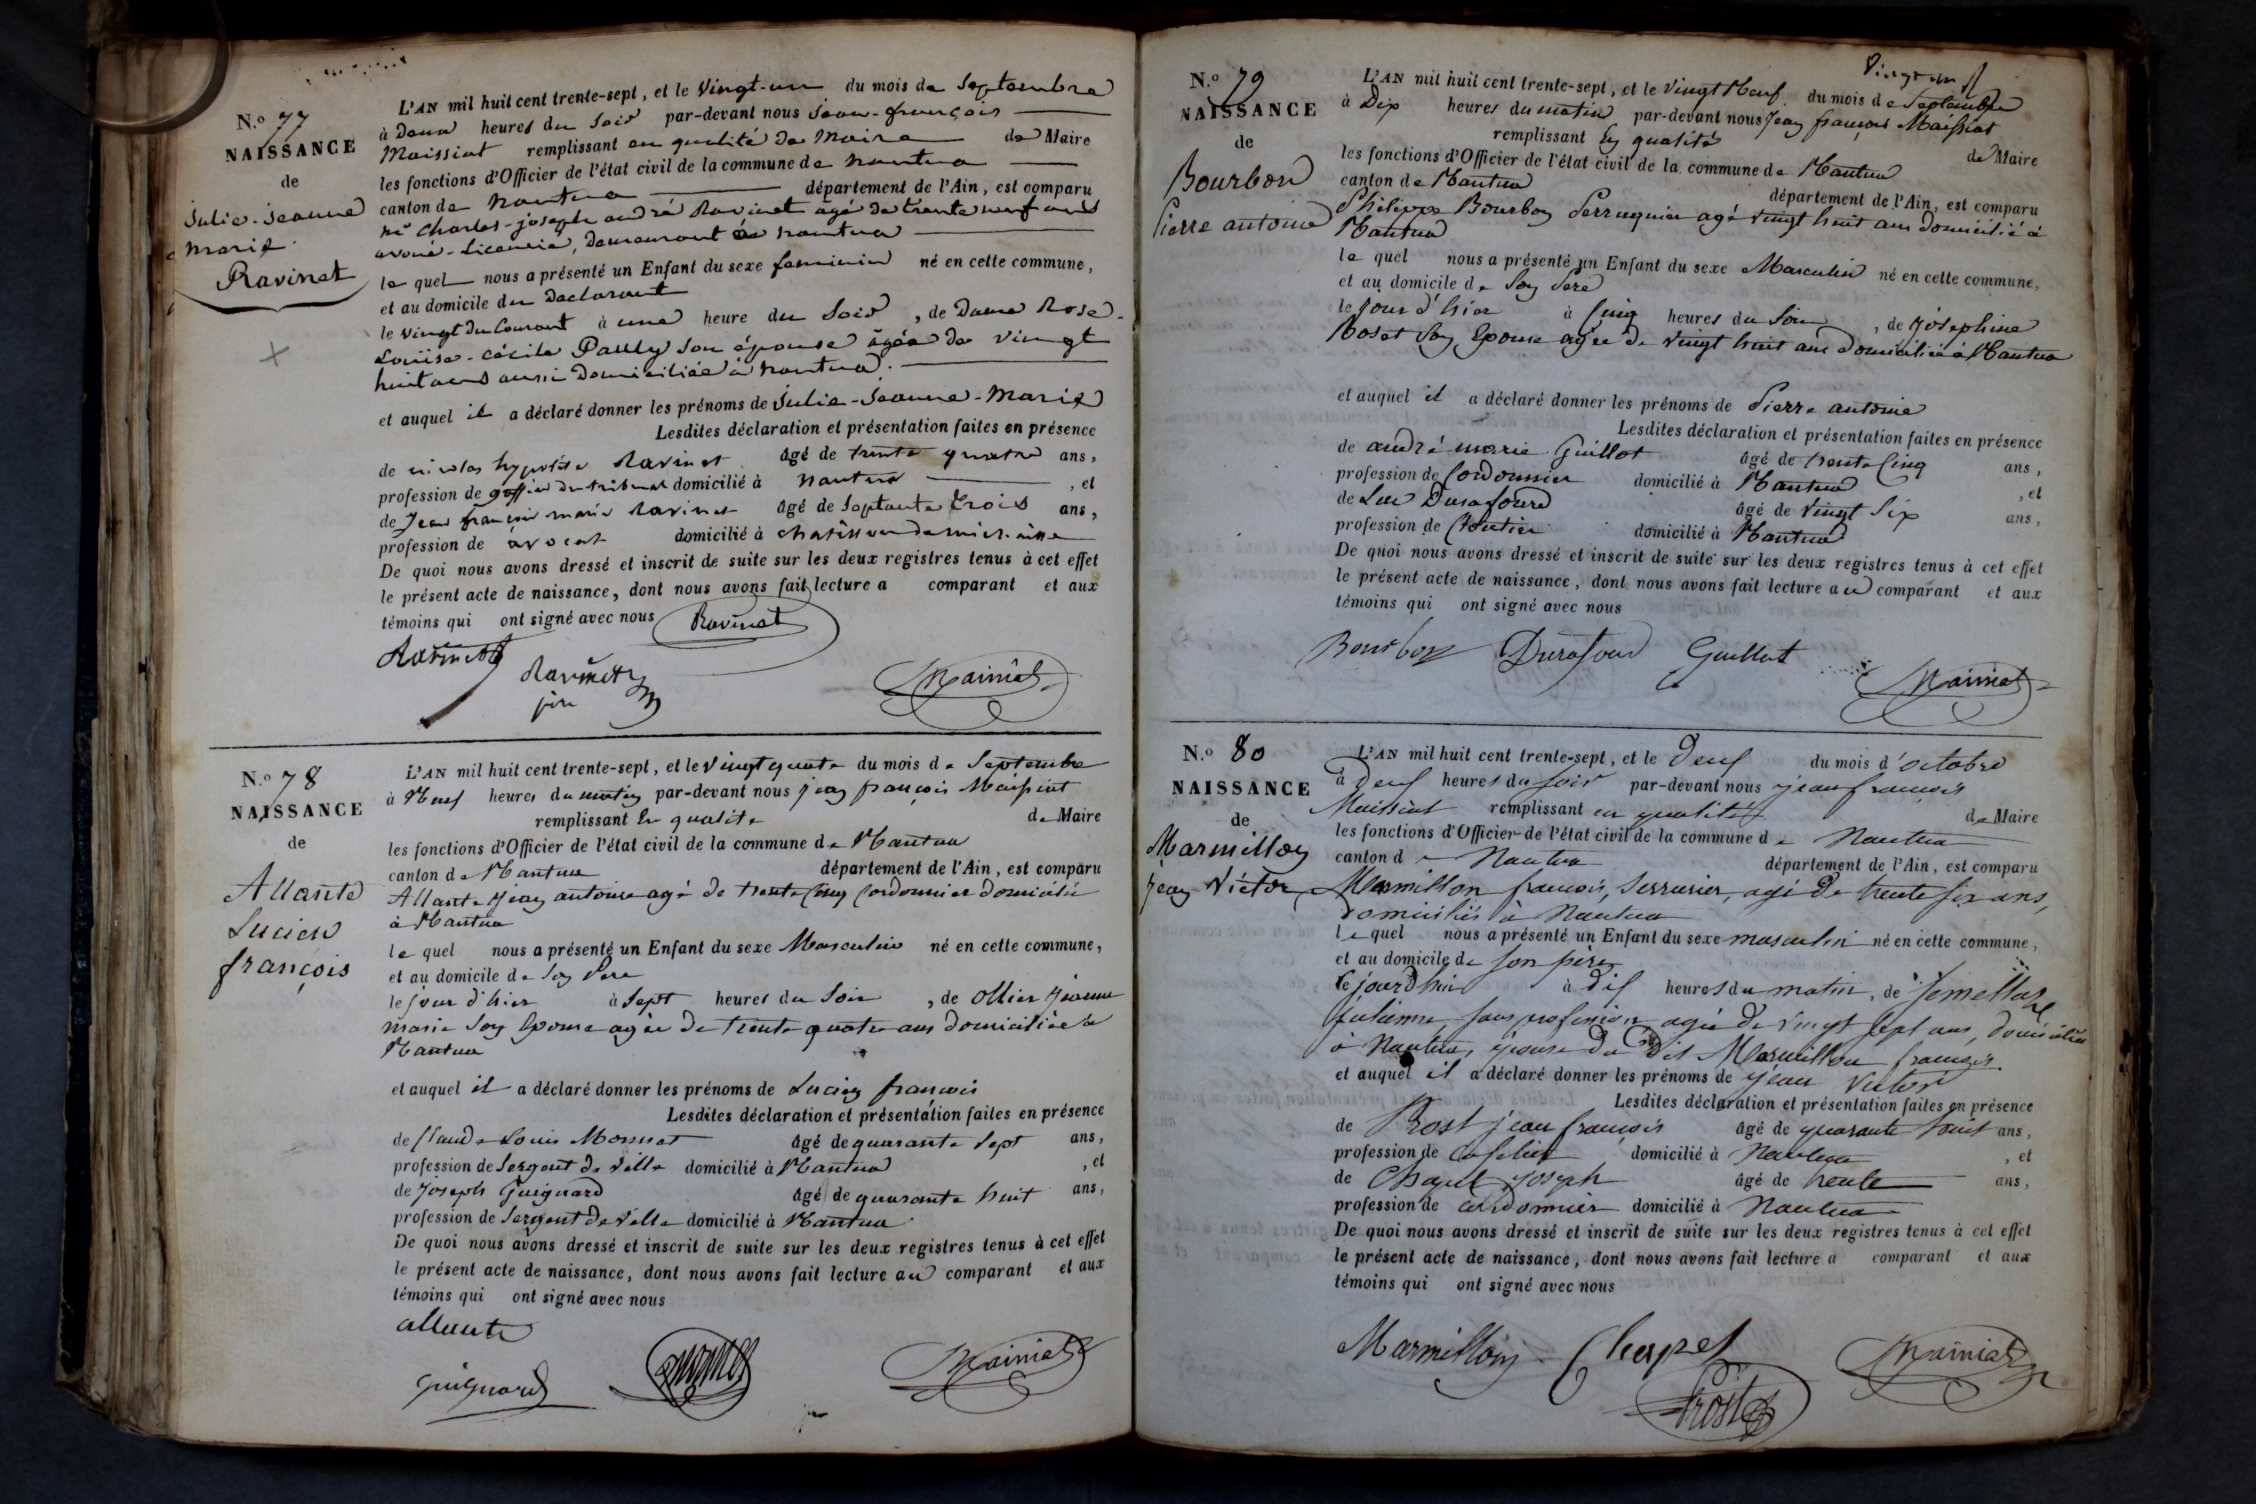 N.º 77
NAISSANCE
de
Julie-Jeanne
Marie
Ravinet
L'AN mil huit cent trente-sept, et le Vingt-un du mois de Septembre
à deux heures du Soir par-devant nous Jean-françois
Maissiat remplissant en qualité de Maire de Maire
les fonctions d'Officier de l'état civil de la commune de nantua
canton de nantua département de l'Ain, est comparu
Mr Charles-joseph andré Ravinet âgé de trente neuf ans
avoué-Licencié, demeurant à nantua
le quel nous a présenté un Enfant du sexe feminin né en cette commune,
et au domicile du declarant
le vingt du Courant à une heure du Soir, de dame Rose-
Louise-cécile Pauly son épouse âgée de vingt
huit ans aussi domiciliée à nantua.
et auquel il a déclaré donner les prénoms de Julie-Jeanne-Marie
Lesdites déclaration et présentation faites en présence
de nicolas hypolite Ravinet âgé de trente quatre ans,
profession de greffier du tribunal domicilié à nantua, et
de Jean françois marie Ravinet âgé de Septante trois ans,
profession de avocat domicilié à chatillon de michaille
De quoi nous avons dressé et inscrit de suite sur les deux registres tenus à cet effet
le présent acte de naissance, dont nous avons fait lecture a comparant et aux
témoins qui ont signé avec nous Ravinet
Ravinet
Ravinet
père
Maissiat
N.º 78
NAISSANCE
de
Allante
Lucien
françois
L'AN mil huit cent trente-sept, et le Vingt quatre du mois de Septembre
à Neuf heures du matin par-devant nous jean françois Maissiat
remplissant En qualite de Maire
les fonctions d'Officier de l'état civil de la commune de Nantua
canton de Nantua département de l'Ain, est comparu
Allante Jean antoine agé de trente Cinq Cordonnier domicilié
à Nantua
le quel nous a présenté un Enfant du sexe Masculin né en cette commune,
et au domicile de Son Pere
le jour d'hier à Sept heures du Soir, de Ollier Jeanne
marie Son Epouse agée de trente quatre ans domiciliée à
Nantua
et auquel il a déclaré donner les prénoms de Lucien francois
Lesdites déclaration et présentation faites en présence
de Claude Louis Monnet âgé de quarante Sept ans,
profession de Sergent de Ville domicilié à Nantua, et
de Joseph Guignard âgé de quarante huit ans,
profession de Sergent de Ville domicilié à Nantua
De quoi nous avons dressé et inscrit de suite sur les deux registres tenus à cet effet
le présent acte de naissance, dont nous avons fait lecture au comparant et aux
témoins qui ont signé avec nous
allante
Guignard
Maissiat
Vingt un
N.º 79
NAISSANCE
de
Bourbon
Pierre antoine
L'AN mil huit cent trente-sept, et le Vingt Neuf du mois de Septembre
à Dix heures du matin par-devant nous Jean françois Maissiat
remplissant En qualité de Maire
les fonctions d'Officier de l'état civil de la commune de Nantua
canton de Nantua département de l'Ain, est comparu
Philippe Bourbon Perruquier agé vingt huit ans domicilié à
Nantua
le quel nous a présenté un Enfant du sexe Masculin né en cette commune,
et au domicile de Son Pere
le Jour d'hier à Cinq heures du Soir, de Joséphine
Roset Son Epouse agée de vingt huit ans domiciliée à Nantua
et auquel il a déclaré donner les prénoms de Pierre antoine
Lesdites déclaration et présentation faites en présence
de andré marie Guillot âgé de trente Cinq ans,
profession de Cordonnier domicilié à Nantua, et
de Luc Durafourd âgé de Vingt Six ans,
profession de domicilié à Nantua
De quoi nous avons dressé et inscrit de suite sur les deux registres tenus à cet effet
le présent acte de naissance, dont nous avons fait lecture au comparant et aux
témoins qui ont signé avec nous
Bourbon Durafour Guillot
Maissiat
N.º 80
NAISSANCE
de
Marmillon
Jean Victor
L'AN mil huit cent trente-sept, et le Deux du mois d'octobre
à Deux heures du soir par-devant nous jean françois
Maissiat remplissant en qualité de Maire
les fonctions d'Officier de l'état civil de la commune de Nantua
canton de Nantua département de l'Ain, est comparu
Marmillon francois, Serrurier, agé de trente six ans,
domicilié à Nantua
le quel nous a présenté un Enfant du sexe masculin né en cette commune,
et au domicile de son père
le jourd'hui à dix heures du matin, de
julienne, sans profession, agée de vingt sept ans, domiciliée
à Nantua, épouse du dit Marmillon françois.
et auquel il a déclaré donner les prénoms de jean Victor
Lesdites déclaration et présentation faites en présence
de Prost jean françois âgé de quarante huit ans,
profession de domicilié à Nantua, et
de Chapel joseph âgé de trente ans,
profession de cordonnier domicilié à Nantua
De quoi nous avons dressé et inscrit de suite sur les deux registres tenus à cet effet
le présent acte de naissance, dont nous avons fait lecture a comparant et aux
témoins qui ont signé avec nous
Marmillon Chapel
Prost
Maissiat